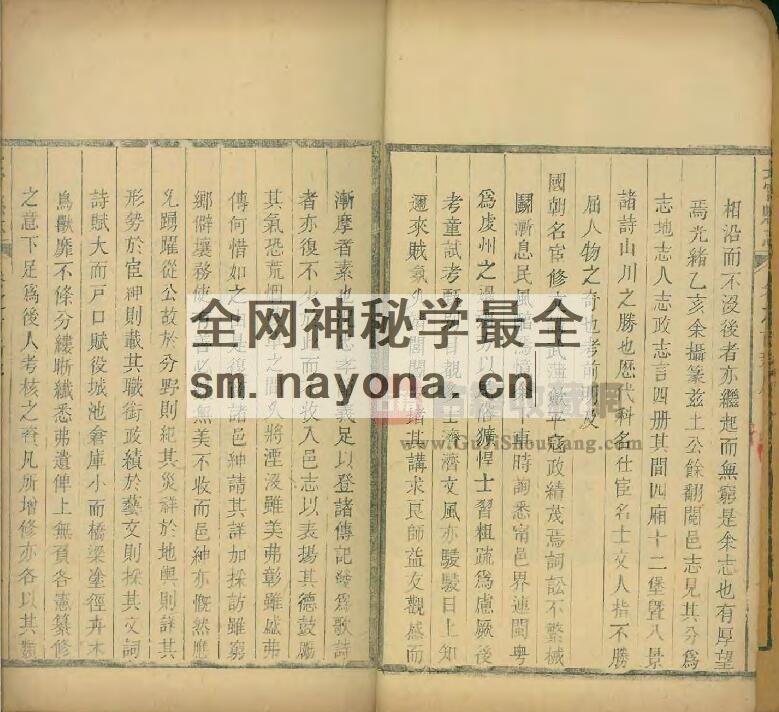 相沿而不沒後者亦繼起而無窮是余志也有厚望
焉光緒乙亥余攝篆兹土公餘翻閱邑志見其分爲
志地志人志政志言四册其間四廂十二堡暨八景
諸詩山川之勝也歷代科名仕宦名士文人指不勝
屈人物之奇也考前明及
國朝名宦修 武 平寇政績茂焉詞訟不繁械
鬬漸息民風 時詢悉甯邑界連閩粤
爲虔州之 以 獷悍士習粗疏爲慮厥後
考童試考 目覩 士濟濟文風亦駸駸日上知
邇來賊氛 閭閻 諸其講求良師益友觀感而
漸摩者素也 孝義足以登諸傳記發爲歌詩
者亦復不少 此而 收入邑志以表揚其德鼓勵
其氣恐荒烟 之間久將湮沒雖美弗彰雖盛弗
傳何惜如之 是復 諸邑紳請其詳加採訪雖窮
鄉僻壤務使 善必 無美不收而邑紳亦慨然應
允踴躍從公故於分野則紀其災祥於地輿則詳其
形勢於宦紳則載其職銜政績於藝文則採其文詞
詩賦大而戸口賦役城池倉庫小而橋梁塗徑卉木
鳥獸靡不條分縷晰纖悉弗遺俾上無負各憲纂修
之意下足爲後人考核之資凡所增修亦各以其類
全网神秘学最全
sm.nayona.cn
收藏网
www.GuJiShouCang.com